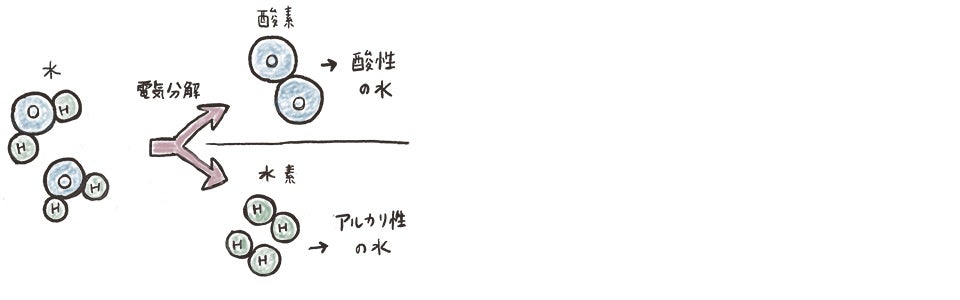 水
O
H
H
O
H
H
電気分解
酸素
O
O
→ 酸性
の水
水素
H
H
H
H
→ アルカリ性
の水